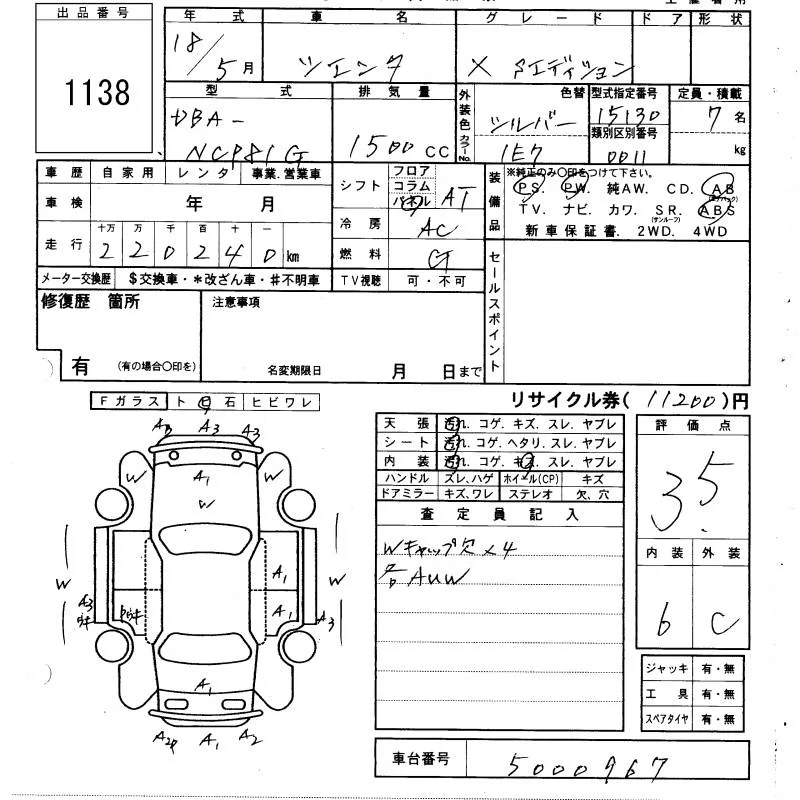 出品番号
1138
年式 車名 グレード ドア 形状
18/5月 シエンタ X Aエディション
型式 排気量 外装色 カラーNo. 色替 型式指定番号 定員・積載
DBA- NCP81G 1500cc シルバー 1E7 15130 7名
類別区別番号
0011 kg
車歴 自家用 レンタ 事業.営業車
車検 年 月
走行 十万 万 千 百 十 一
2 2 0 2 4 0 km
メーター交換歴 $交換車・*改ざん車・#不明車
シフト フロア コラム パネル AT
冷房 AC
燃料 G
TV視聴 可・不可
装備品 ※純正のみ〇印をつけて下さい。
PS. PW. 純AW. CD. AB(エアバック)
TV. ナビ. カワ. SR.(サンルーフ) ABS
新車保証書. 2WD. 4WD
修復歴 箇所
有 (有の場合〇印を)
注意事項
名変期限日 月 日まで
セールスポイント
リサイクル券( 11200 )円
Fガラス ト 石 ヒビワレ
天張 汚れ. コゲ. キズ. スレ. ヤブレ
シート 汚れ. コゲ. ヘタリ. スレ. ヤブレ
内装 汚れ. コゲ. キズ. スレ. ヤブレ
ハンドル ズレ、ハゲ ホイール(CP) キズ
ドアミラー キズ、ワレ ステレオ 欠、穴
査定員記入
Wキャップ欠×4
各AUW
評価点
3.5
内装 外装
6 C
ジャッキ 有・無
工具 有・無
スペアタイヤ 有・無
車台番号 5000967
A3 A3
A1
W W W
W W
A1
A1
A3 A3
A1
A1 A2